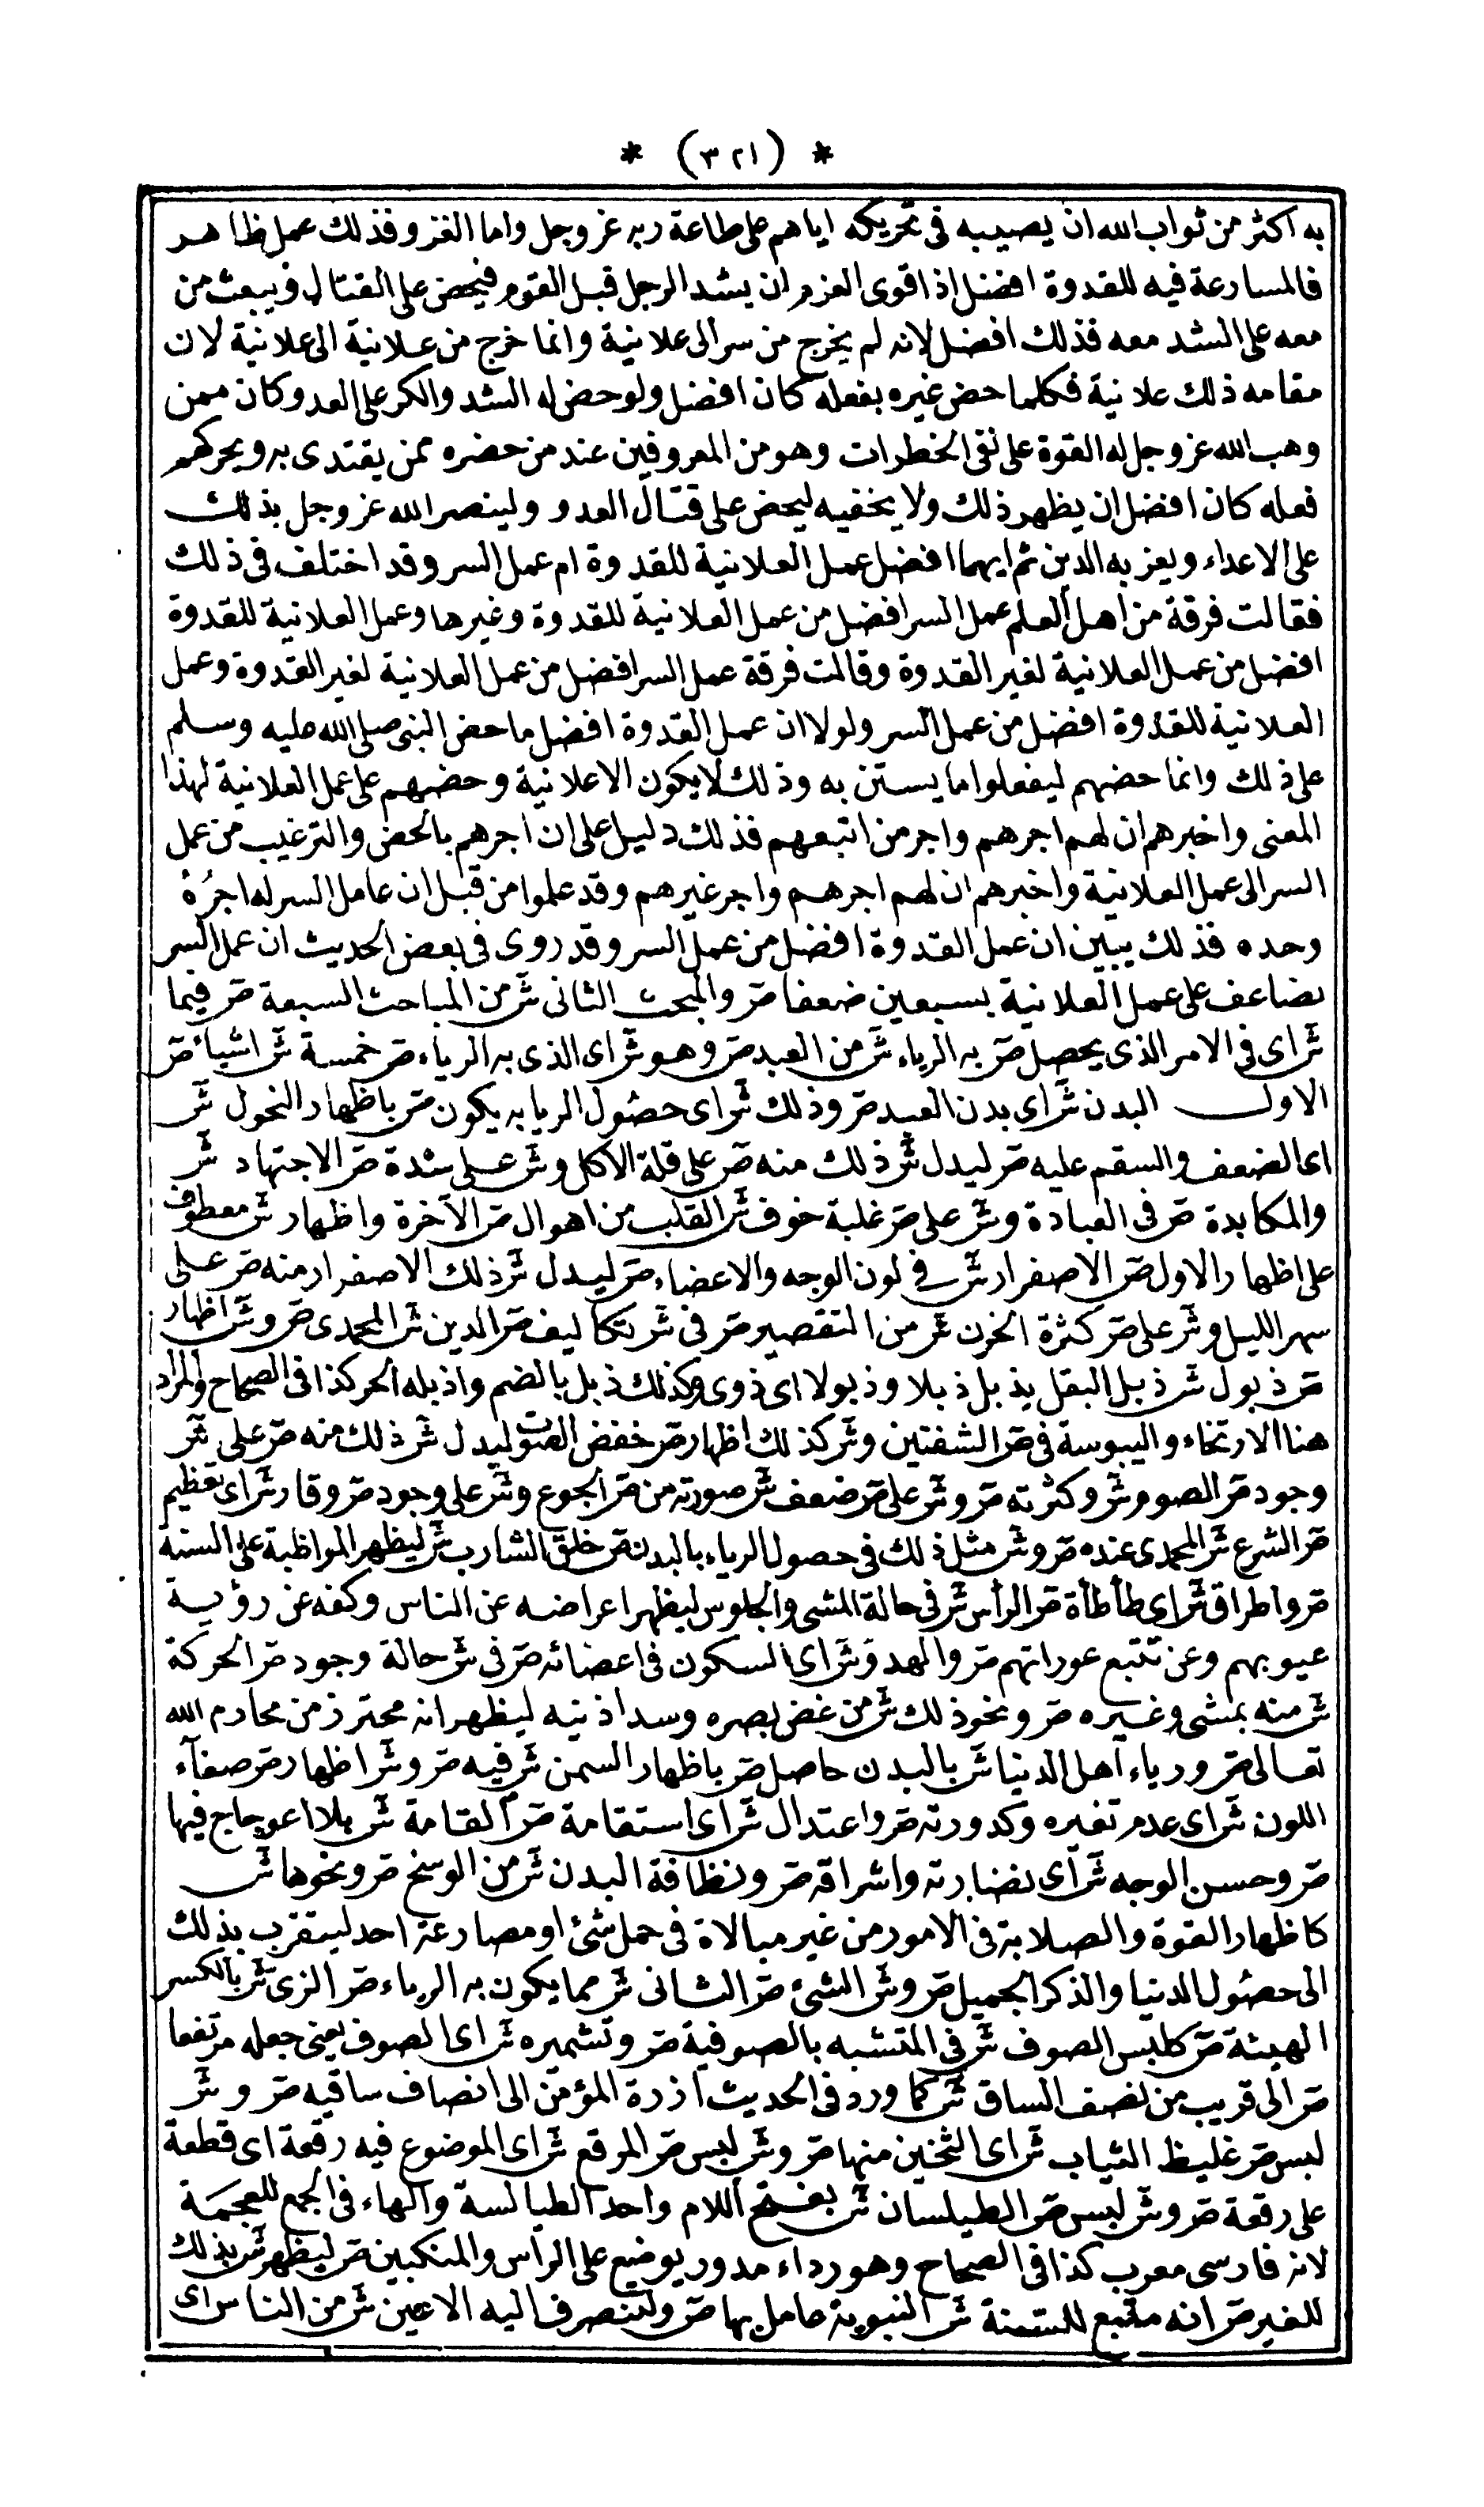 * (٣٢١) *
به اكثر من ثواب الله ان يصيبه فى تحريكه اياهم على طاعة ربه عز وجل واما الغزو فذلك عمل ظاهر
فالمسارعة فيه للقدوة افضل اذا قوى العزم ان يشد الرجل قبل القوم فيحض على القتال ويبعث من
معه على الشد معه فذلك افضل لانه لم يخرج من سر الى علانية وانما خرج من علانية الى علانية لان
مقامه ذلك علانية فكلما حض غيره بفعله كان افضل ولو حض له الشد والكر على العدو وكان ممن
وهب الله عز وجل له القوة على نفى الخطرات وهو من المعروفين عند من حضره ممن يقتدى به ويحركهم
فعله كان افضل ان يظهر ذلك ولا يخفيه ليحض على قتال العدو ولينصر الله عز وجل بذلك
على الاعداء ويعز به الدين ثم ايهما افضل عمل العلانية للقدوة ام عمل السر وقد اختلف فى ذلك
فقالت فرقة من اهل العلم عمل السر افضل من عمل العلانية للقدوة وغيرها وعمل العلانية للقدوة
افضل من عمل العلانية لغير القدوة وقالت فرقة عمل السر افضل من عمل العلانية لغير القدوة وعمل
العلانية للقدوة افضل من عمل السر ولولا ان عمل القدوة افضل ما حض النبى صلى الله عليه وسلم
على ذلك وانما حضهم ليفعلوا ما يستن به وذلك لا يكون الا علانية وحضهم على عمل العلانية لهذا
المعنى واخبرهم ان لهم اجرهم واجر من اتبعهم فذلك دليل على ان اجرهم بالحض والترغيب من عمل
السر الى عمل العلانية واخبرهم ان لهم اجرهم واجر غيرهم وقد علموا من قبل ان عامل السر له اجرُهُ
وحده فذلك يبين ان عمل القدوة افضل من عمل السر وقد روى فى بعض الحديث ان عمل السر
يضاعف على عمل العلانية بسبعين ضعفا صر والمبحث الثانى شر من المباحث السبعة صر فيما
شر اى فى الامر الذى يحصل صر به الرياء شر من العبد صر وهو شر اى الذى به الرياء صر خمسة شر اشياء صر
الاول البدن شر اى بدن العبد صر وذلك شر اى حصُول الريا به يكون صر باظهار النحول شر
اى الضعف والسقم عليه صر ليدل شر ذلك منه صر على قلة الاكل وشر على شدة صر الاجتهاد شر
والمكابدة صر فى العبادة وشر على صر غلبة خوف شر القلب من اهوال صر الآخرة واظهار شر معطوف
على اظهار الاول صر الاصفرار شر فى لون الوجه والاعضاء صر ليدل شر ذلك الاصفرار منه صر على
سهر الليل وشر على صر كثرة الحزن شر من التقصير صر فى شر تكاليف صر الدين شر المحمدى صر وشر اظهار
صر ذبول شر ذبل البقل يذبل ذبلا وذبولا اى ذوى وكذلك ذبل بالضم واذبله الحر كذا فى الصحاح والمراد
هنا الارتخاء واليبوسة فى صر الشفتين وشر كذلك اظهار صر خفض الصوت ليدل شر ذلك منه صر على شر
وجود صر الصوم شر وكثرته صر وشر على صر ضعف شر صورته من صر الجوع وشر على وجود صر وقار شر اى تعظيم
صر الشرع شر المحمدى عنده صر وشر مثل ذلك فى حصول الرياء بالبدن صر حلق الشارب شر ليظهر المواظبة على السنة
صر واطراق شر اى طأطأة صر الرأس شر فى حالة المشى والجلوس ليظهر اعراضه عن الناس وكفه عن رؤية
عيوبهم وعن تتبع عوراتهم صر والهدو شر اى السكون فى اعضائه صر فى شر حالة وجود صر الحركة
شر منه بمشى وغيره صر ونحو ذلك شر من غض بصره وسد اذنيه ليظهر انه محترز من محارم الله
تعالى صر ورياء اهل الدنيا شر بالبدن حاصل صر باظهار السمن شر فيه صر وشر اظهار صر صفآء
اللون شر اى عدم تغيره وكدورته صر واعتدال شر اى استقامة صر القامة شر بلا اعوجاج فيها
صر وحسن الوجه شر اى نضارته واشراقه صر ونظافة البدن شر من الوسخ صر ونحوها شر
كاظهار القوة والصلابة فى الامور من غير مبالاة فى حمل شئ او مصارعة احد ليتقرب بذلك
الى حصُول الدنيا والذكر الجميل صر وشر الشئ صر الثانى شر مما يكون به الرياء صر الزى شر بالكسر
الهيئة صر كلبس الصوف شر فى المتشبه بالصوفية صر وتشميره شر اى الصوف يعنى جعله مرتفعا
صر الى قريب من نصف الساق شر كما ورد فى الحديث ازرة المؤمن الى انصاف ساقيه صر وشر
لبس صر غليظ الثياب شر اى الثخين منها صر وشر لبس صر المرقع شر اى الموضوع فيه رقعة اى قطعة
على رقعة صر وشر لبس صر الطيلسان شر بفتح اللام واحد الطيالسة والهاء فى الجمع للعجمَة
لانه فارسى معرب كذا فى الصحاح وهو رداء مدور يوضع على الراس والمنكبين صر ليظهر شر بذلك
للغير صر انه متبع للسنة شر النبوية عامل بها صر ولتنصرف اليه الاعين شر من الناس اى